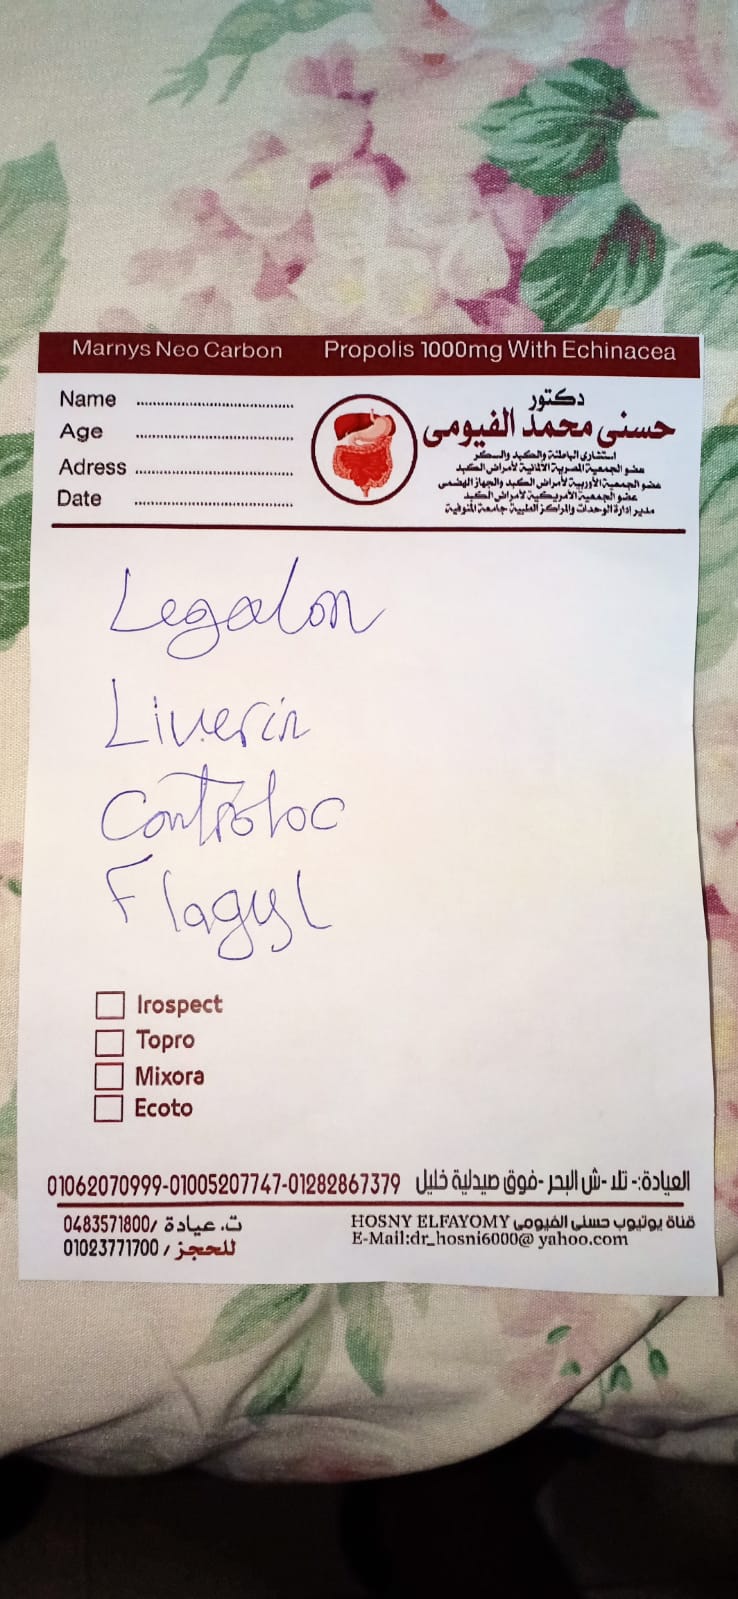 Marnys Neo Carbon Propolis 1000mg With Echinacea
Name
Age
Adress
Date
دكتور
حسنى محمد الفيومى
استشارى الباطنة والكبد والسكر
عضو الجمعية المصرية الألمانية لأمراض الكبد
عضو الجمعية الأوربية لأمراض الكبد والجهاز الهضمى
عضو الجمعية الأمريكية لأمراض الكبد
مدير إدارة الوحدات والمراكز الطبية جامعة المنوفية
Legalon
Liverin
Controloc
Flagyl
Irospect
Topro
Mixora
Ecoto
العيادة:- تلا -ش البحر -فوق صيدلية خليل 01062070999-01005207747-01282867379
ت. عيادة /0483571800
للحجز / 01023771700
قناة يوتيوب حسنى الفيومى HOSNY ELFAYOMY
E-Mail:dr_hosni6000@ yahoo.com